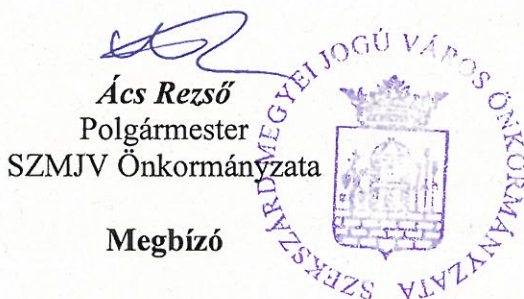 Ács Rezső
Polgármester
SZMJV Önkormányzata
Megbízó
SZEKSZÁRD MEGYEI JOGÚ VÁROS ÖNKORMÁNYZATA